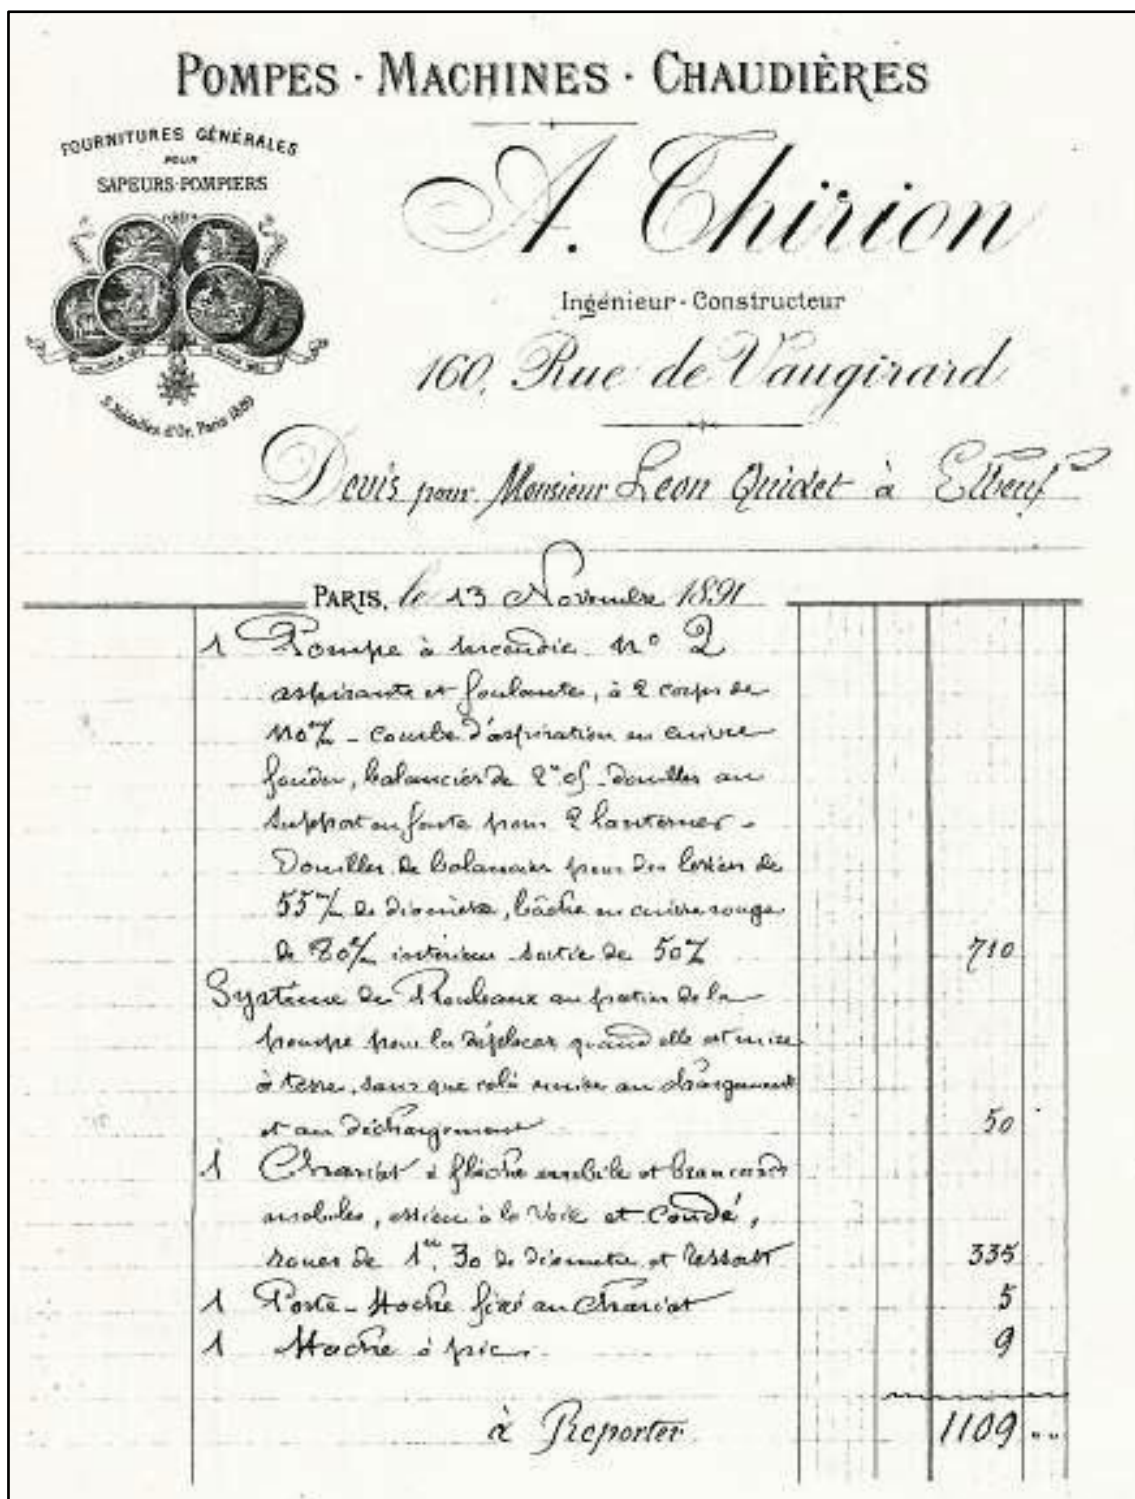 POMPES · MACHINES · CHAUDIÈRES
FOURNITURES GÉNÉRALES
POUR
SAPEURS-POMPIERS
A. Thirion
Ingénieur-Constructeur
160, Rue de Vaugirard
5 Médailles d'Or, Paris 1889
Devis pour Monsieur Leon Quidet à Elbeuf
PARIS, le 13 Novembre 1891
1 Pompe à incendie n° 2
aspirante et foulante, à 2 corps de
110 m/m - courbe d'aspiration en cuivre
balancier de douilles au
support en fonte pour 2 lanternes -
Douilles de balancier pour des leviers de
55 m/m de diamètre, bâche en cuivre rouge
de 80 c/m intérieur sortie de 50 710
Système de Rouleaux au patin de la
pompe pour la déplacer quand elle est mise
à terre, sans que cela nuise au chargement
et au déchargement 50
1 Chariot à flèche mobile et brancards
mobiles, essieu à la Voie et Coudé,
roues de 1m,30 de diametre et ressort 335
1 Porte-Hache fixé au Chariot 5
1 Hache à pic 9
à Reporter 1109 " "